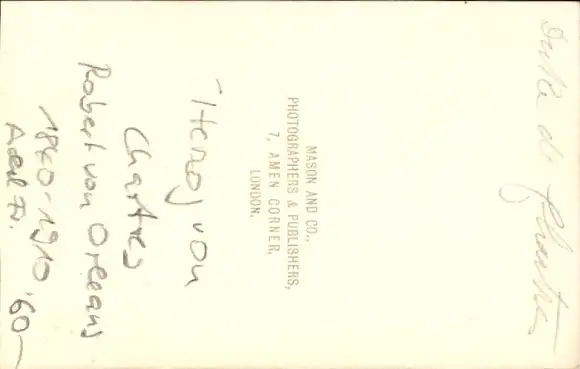 Duke de Chartres
MASON AND CO.,
PHOTOGRAPHERS & PUBLISHERS,
7, AMEN CORNER,
LONDON.
Herzog von
Chartres
Robert von Orleans
1840-1910
Adel Fr. '60-